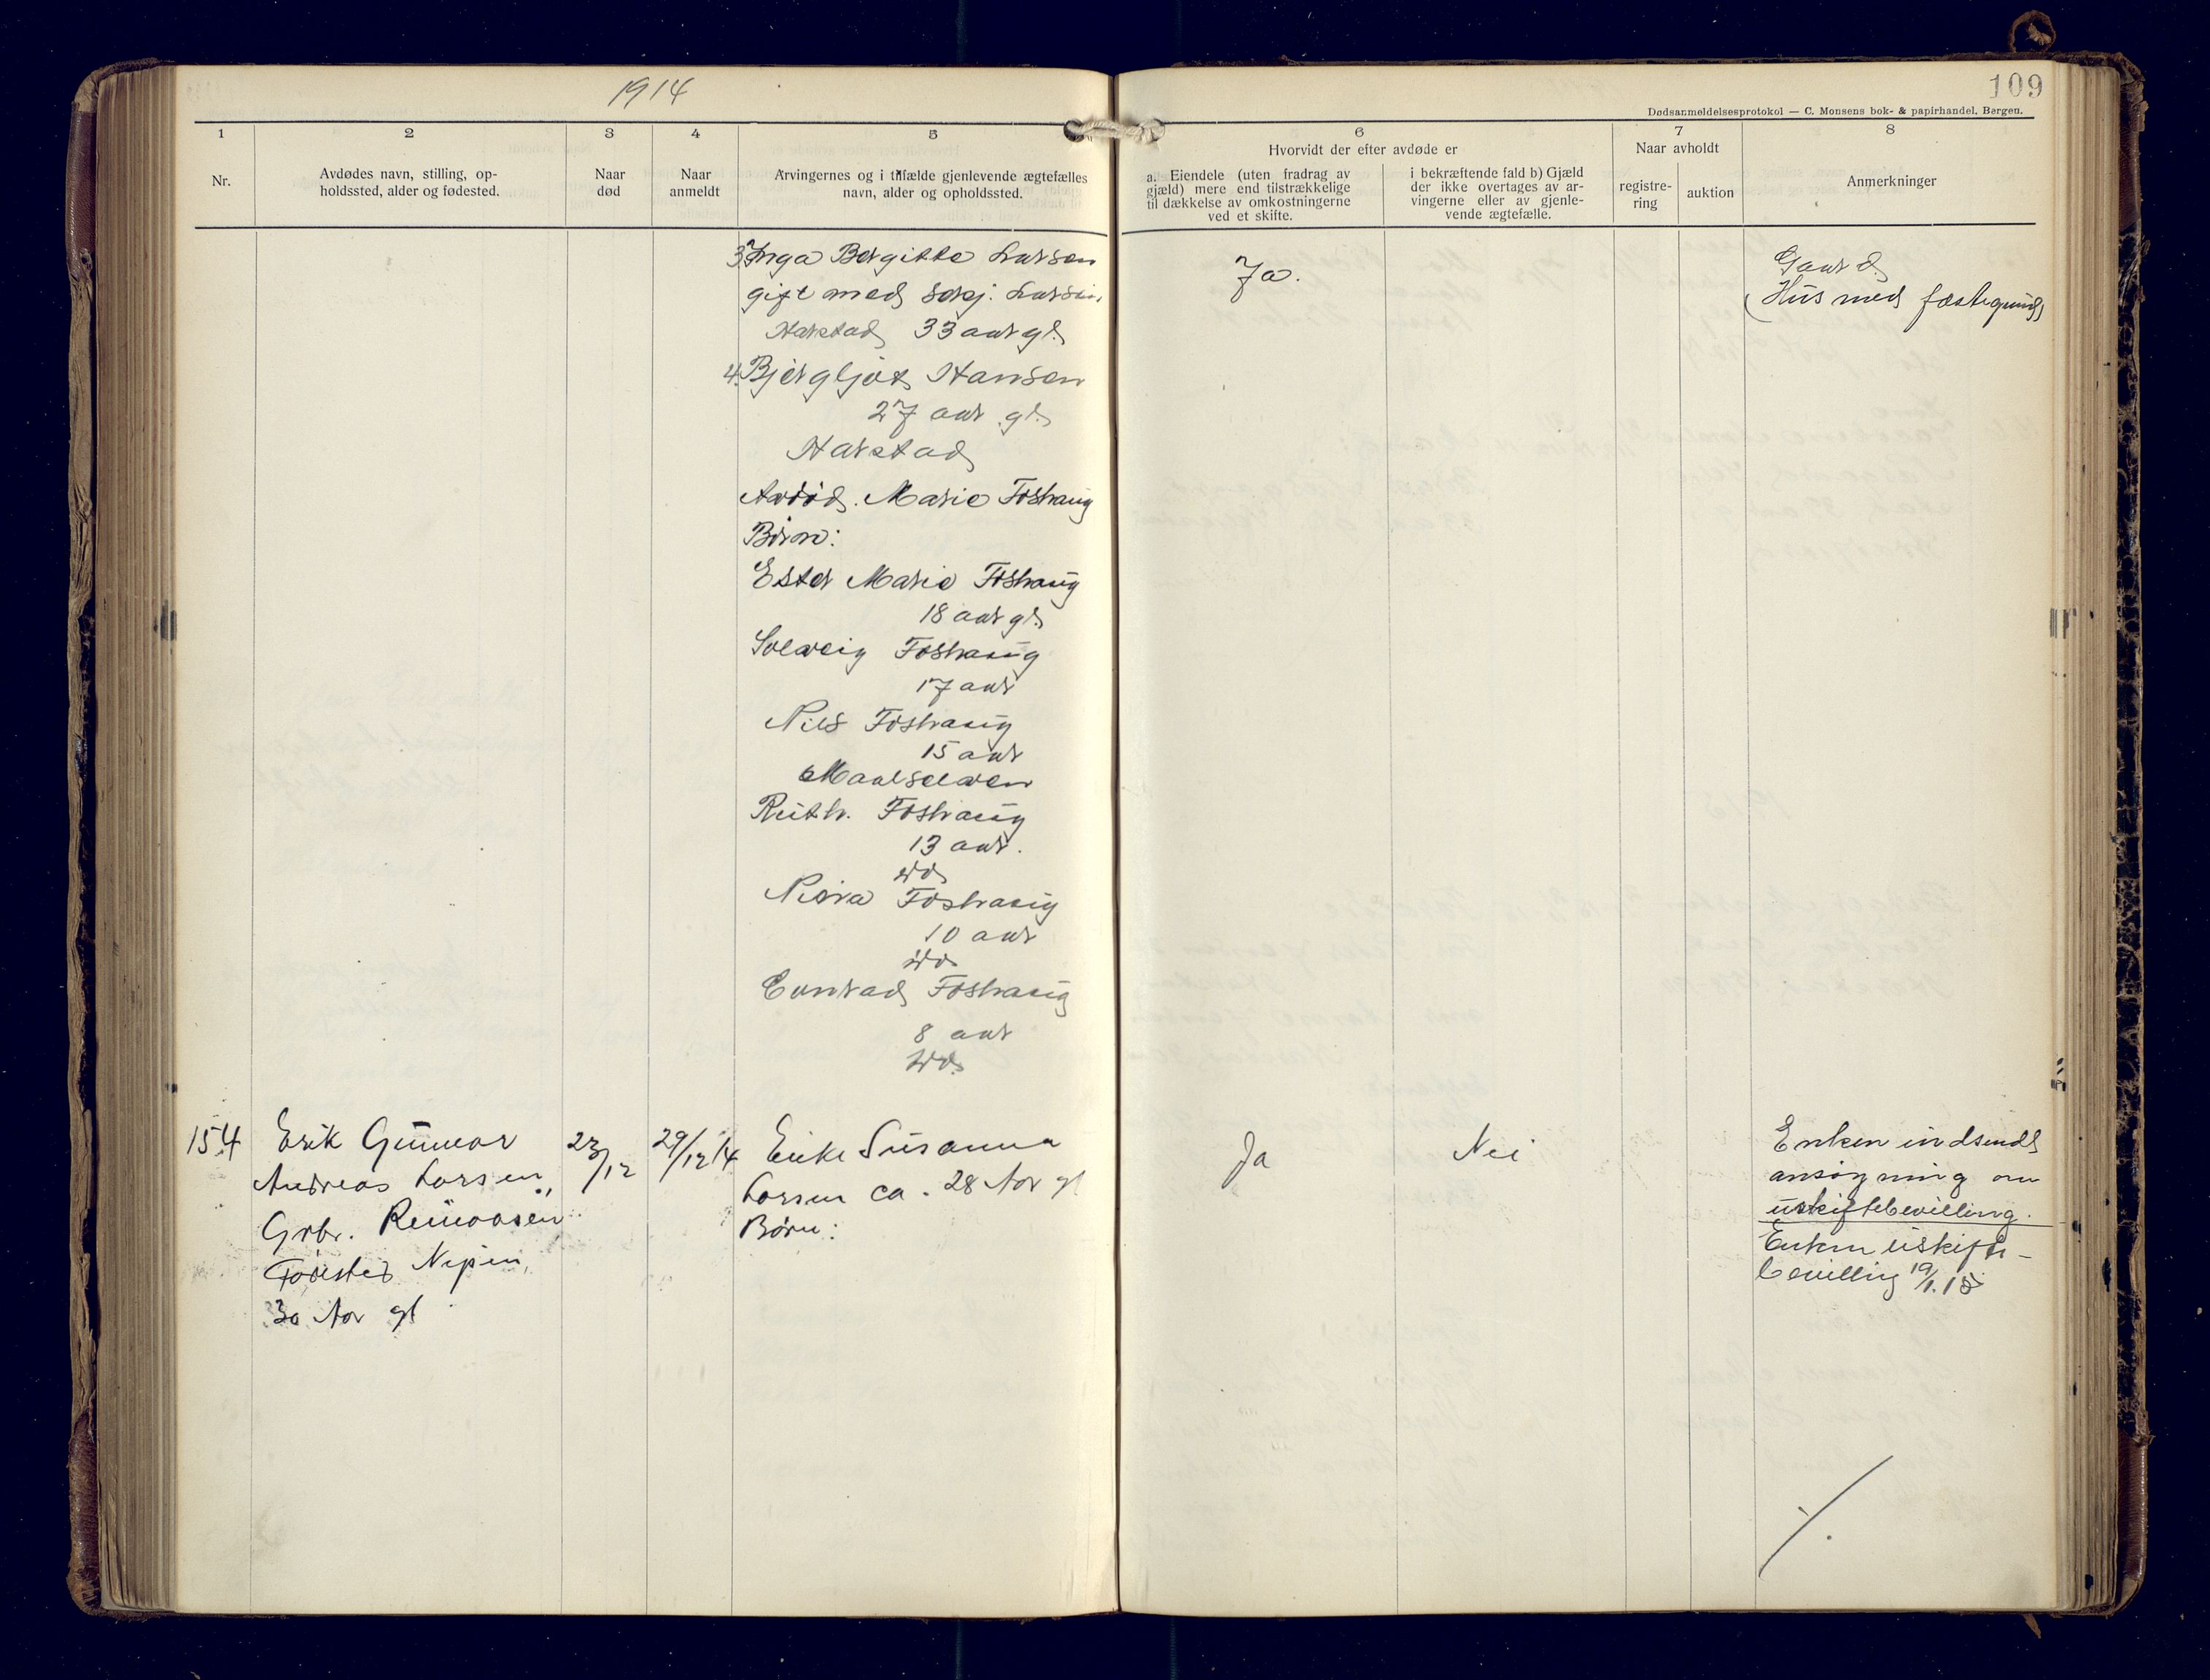 1914
109
Dødsanmeldelsesprotokol — C. Monsens bok- & papirhandel, Bergen.
1
2
3
4
5
6
7
8
Nr.
Avdødes navn, stilling, op-
holdssted, alder og fødested.
Naar
død
Naar
anmeldt
Arvingernes og i tilfælde gjenlevende ægtefælles
navn, alder og opholdssted.
Hvorvidt der efter avdøde er
a. Eiendele (uten fradrag av
gjæld) mere end tilstrækkelige
til dækkelse av omkostningerne
ved et skifte.
i bekræftende fald b) Gjæld
der ikke overtages av ar-
vingerne eller av gjenle-
vende ægtefælle.
Naar avholdt
registre-
ring
auktion
Anmerkninger
3. Inga Bergitte Larsen
gift med Serj. Larsen,
Harstad 33 aar gl.
4. Bjergljot Hansen
27 aar gl.
Harstad
Avdød. Marie Foshaug
Børn:
Ester Marie Foshaug
18 aar gl.
Solveig Foshaug
17 aar
Nils Foshaug
15 aar
Maalselven
Ruth. Foshaug
13 aar.
Foshaug
10 aar
Conrad Foshaug
8 aar
Ja.
Gaard
(Hus med fæstegrund)
154
Erik Gunnar
Andreas Larsen,
Grbr.
Nipen,
30 Aar gl
23/12
29/12 14
Enke Susanna
Larsen ca. 28 Aar gl
Børn:
Ja
Nei
Enken indsendt
ansøgning om
uskiftebevilling.
Enken uskifte-
bevilling 19/1. 15